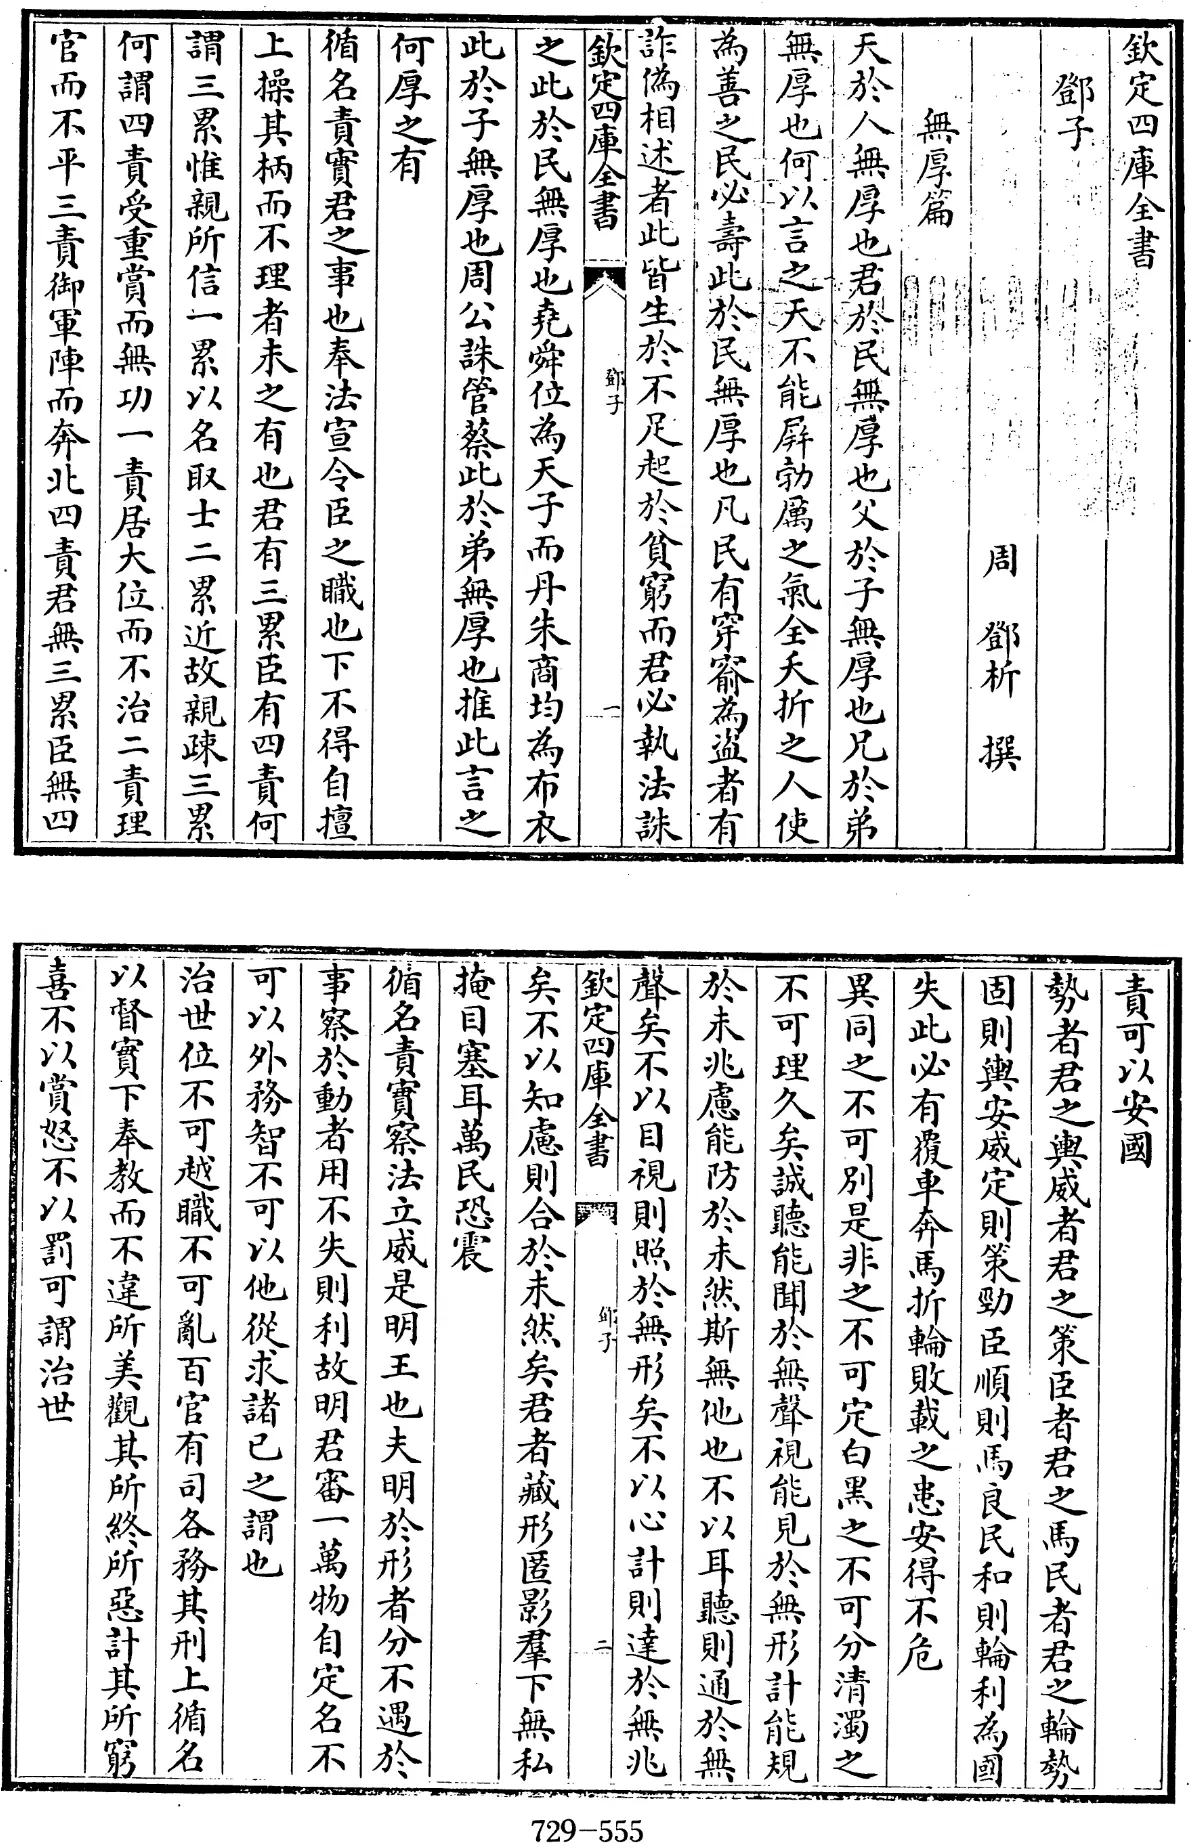 欽定四庫全書
鄧子
周鄧析撰
無厚篇
天於人無厚也君於民無厚也父於子無厚也兄於弟
無厚也何以言之天不能屛勃厲之氣全夭折之人使
為善之民必壽此於民無厚也凡民有穿窬為盜者有
詐偽相述者此皆生於不足起於貧窮而君必執法誅
欽定四庫全書
鄧子
一
之此於民無厚也堯舜位為天子而丹朱商均為布衣
此於子無厚也周公誅管蔡此於弟無厚也推此言之
何厚之有
循名責實君之事也奉法宣令臣之職也下不得自擅
上操其柄而不理者未之有也君有三累臣有四責何
謂三累惟親所信一累以名取士二累近故親疎三累
何謂四責受重賞而無功一責居大位而不治二責理
官而不平三責御軍陣而奔北四責君無三累臣無四
責可以安國
勢者君之輿威者君之策臣者君之馬民者君之輪勢
固則輿安威定則策勁臣順則馬良民和則輪利為國
失此必有覆車奔馬折輪敗載之患安得不危
異同之不可別是非之不可定白黑之不可分清濁之
不可理久矣誠聽能聞於無聲視能見於無形計能規
於未兆慮能防於未然斯無他也不以耳聽則通於無
聲矣不以目視則照於無形矣不以心計則達於無兆
欽定四庫全書
鄧子
二
矣不以知慮則合於未然矣君者藏形匿影羣下無私
掩目塞耳萬民恐震
循名責實察法立威是明王也夫明於形者分不遇於
事察於動者用不失則利故明君審一萬物自定名不
可以外務智不可以他從求諸已之謂也
治世位不可越職不可亂百官有司各務其刑上循名
以督實下奉教而不違所美觀其所終所惡計其所窮
喜不以賞怒不以罰可謂治世
729-555